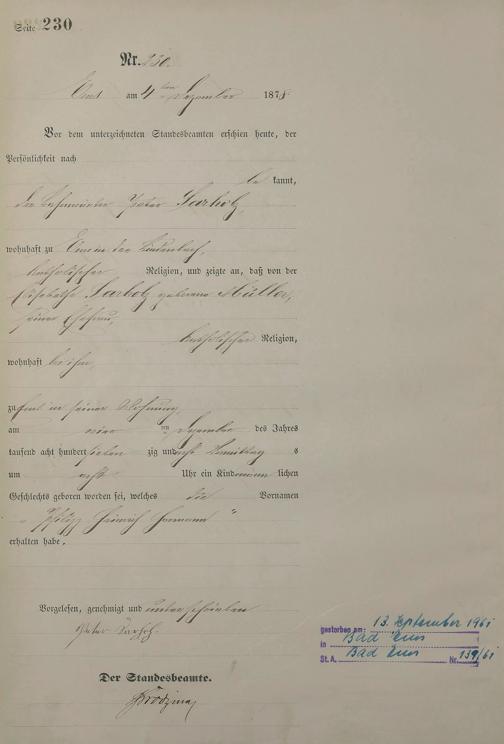 Seite 230
Nr. 230.
Ems am 4ten Dezember 1878
Vor dem unterzeichneten Standesbeamten erschien heute, der
Persönlichkeit nach
be kannt,
der Peter Sarholz,
wohnhaft zu Ems in der Lindenbach,
katholischer Religion, und zeigte an, daß von der
Elisabetha Sarholz geborene Müller,
seiner Ehefrau,
katholischer Religion,
wohnhaft bei ihm,
zu Ems in seiner Wohnung
am vier ten Dezember des Jahres
tausend acht hundert sieben zig und acht Vormittag s
um acht Uhr ein Kind männ lichen
Geschlechts geboren worden sei, welches die Vornamen
„Philipp Heinrich Hermann“
erhalten habe.
Vorgelesen, genehmigt und unterschrieben
Peter Sarholz.
Der Standesbeamte.
gestorben am: 13. September 1961
in Bad Ems
St. A. Bad Ems Nr. 139/61